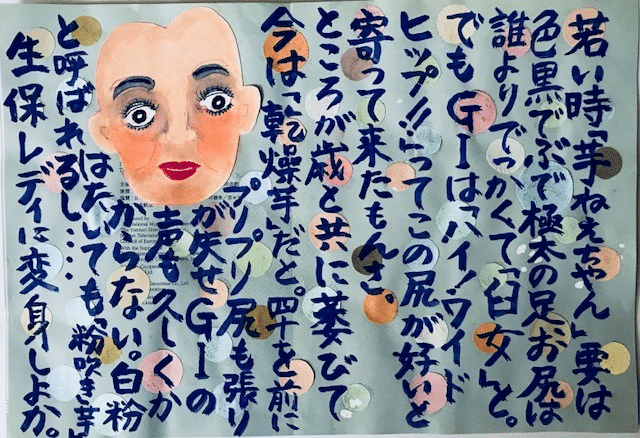 若い時「芋ねえちゃん」要は
色黒でぶで極太の足、お尻は
誰よりでっかくて「臼女」と。
でもGIは「ハイ!ワイド
ヒップ!!」ってこの尻が好いと
寄って来たもんさ。
ところが歳と共に萎びて
今は「乾燥芋」だと。四十を前に
プリプリ尻も張り
が失せGIの
声も久しくか
からない。白粉
はたいても「粉吹き芋」
と呼ばれるし…
生保レディに変身しよか。